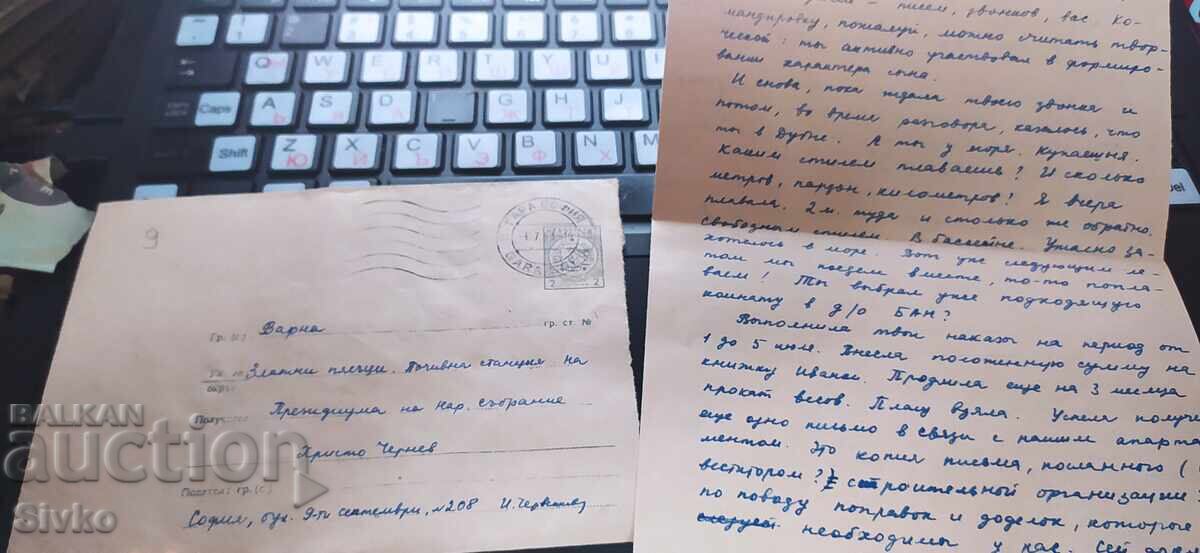 9
ГАРА СОФИЯ
2 2
Гр. (с) Варна гр. ст. №
Златни пясъци. Почивна станция на
Президиума на нар. събрание
Получ
Христо Чернев
Подател: гр. (с)
София, бул. 9-ти септември, №208 И.
писем, звонков, вас ко-
мандировку, пожалуй, можно считать твор-
ческой: ты активно участвовал в формиро-
вании характера сына.
И снова, пока ждала твоего звонка и
потом, во время разговора, казалось, что
ты в Дубне. А ты у моря. Купаешься.
Каким стилем плаваешь? И сколько
метров, пардон, километров! Я вчера
плавала. 2 м. туда и столько же обратно.
Свободным стилем. В бассейне. Ужасно за-
хотелось в море. Вот уже следующим ле-
том мы поедем вместе, то-то попла-
ваем! Ты выбрал уже подходящую
комнату в д/о БАН?
Выполнила твои наказы на период от
1 до 5 июля. Внесла положенную сумму на
книжку Иванси. Продлила еще на 3 месяца
прокат весов. Плащ взяла. Успела получи
еще одно письмо в связи с нашим апарта
ментом. Это копия письма, посланного (
веститором?) строительной организации.
по поводу поправок и доделок, которые
необходимы у нас.
Caps
Shift
Q
A S D F G H J K L
Z X C V B N M
Ю Й Ъ Э Ф
BALKAN
auction
Sivko